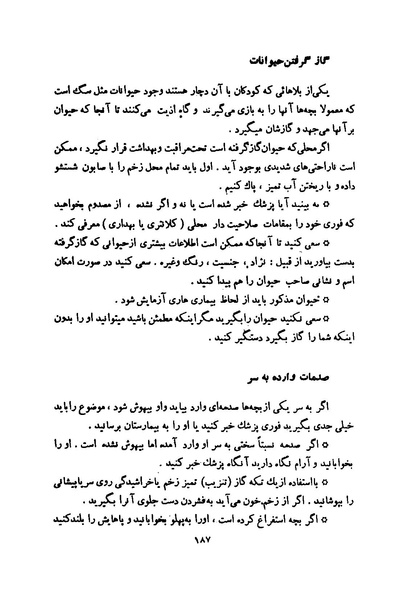 گاز گرفتن حیوانات
یکی از بلاهائی که کودکان با آن دچار هستند وجود حیوانات مثل سگ است
که معمولا بچه‌ها آنها را به بازی می‌گیرند و گاه اذیت می‌کنند تا آنجا که حیوان
بر آنها می‌جهد و گازشان میگیرد .
اگر محلی که حیوان گاز گرفته است تحت مراقبت و بهداشت قرار نگیرد ، ممکن
است ناراحتی‌های شدیدی بوجود آید . اول باید تمام محل زخم را با صابون شستشو
داده و با ریختن آب تمیز ، پاك کنیم .
* به بینید آیا پزشك خبر شده است یا نه و اگر نشده ، از مصدوم بخواهید
که فوری خود را بمقامات صلاحیت دار محلی ( کلانتری یا بهداری ) معرفی کند .
* سعی کنید تا آنجا که ممکن است اطلاعات بیشتری از حیوانی که گاز گرفته
بدست بیاورید از قبیل : نژاد ، جنسیت ، رنگ وغیره . سعی کنید در صورت امکان
اسم و نشانی صاحب حیوان را هم پیدا کنید .
* حیوان مذکور باید از لحاظ بیماری هاری آزمایش شود .
* سعی نکنید حیوان را بگیرید مگر اینکه مطمئن باشید میتوانید او را بدون
اینکه شما را گاز بگیرد دستگیر کنید .
صدمات وارده به سر
اگر به سر یکی از بچه‌ها صدمه‌ای وارد بیاید واو بیهوش شود ، موضوع را باید
خیلی جدی بگیرید فوری پزشك خبر کنید یا او را به بیمارستان برسانید .
* اگر صدمه نسبتاً سختی به سر او وارد آمده اما بیهوش نشده است . او را
بخوابانید و آرام نگاه دارید آنگاه پزشك خبر کنید .
* با استفاده از یك تکه گاز (تنزیب) تمیز زخم یا خراشیدگی روی سر یا پیشانی
را بپوشانید . اگر از زخم خون می‌آید به فشردن دست جلوی آنرا بگیرید .
* اگر بچه استفراغ کرده است ، اورا به پهلو بخوابانید و پاهایش را بلند کنید
۱۸۷